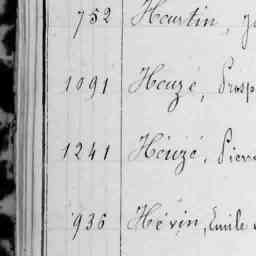 752 Hourtin, J
1091 Houzé, Prosp
1241 Houzé, Pierr
936 Hévin, Emile